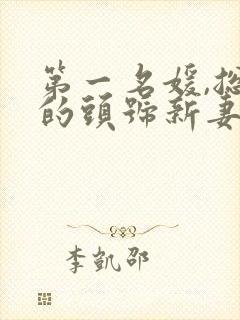 第一名媛,總
的頭號新妻
李凱邵